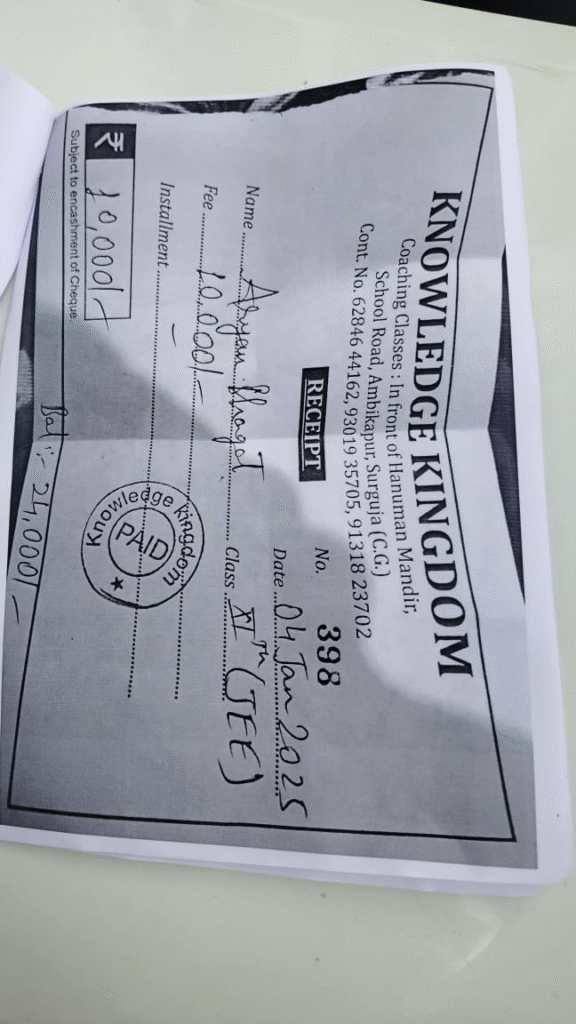 KNOWLEDGE KINGDOM
Coaching Classes : In front of Hanuman Mandir,
School Road, Ambikapur, Surguja (C.G.)
Cont. No. 62846 44162, 93019 35705, 91318 23702
RECEIPT
No. 398
Date 04 Jan 2025
Name Aryan Bhagat Class XI th (JEE)
Fee 10,000/-
Installment –
Knowledge kingdom
PAID
₹ 10,000/-
Subject to encashment of Cheque.
Bal :- 24,000/-